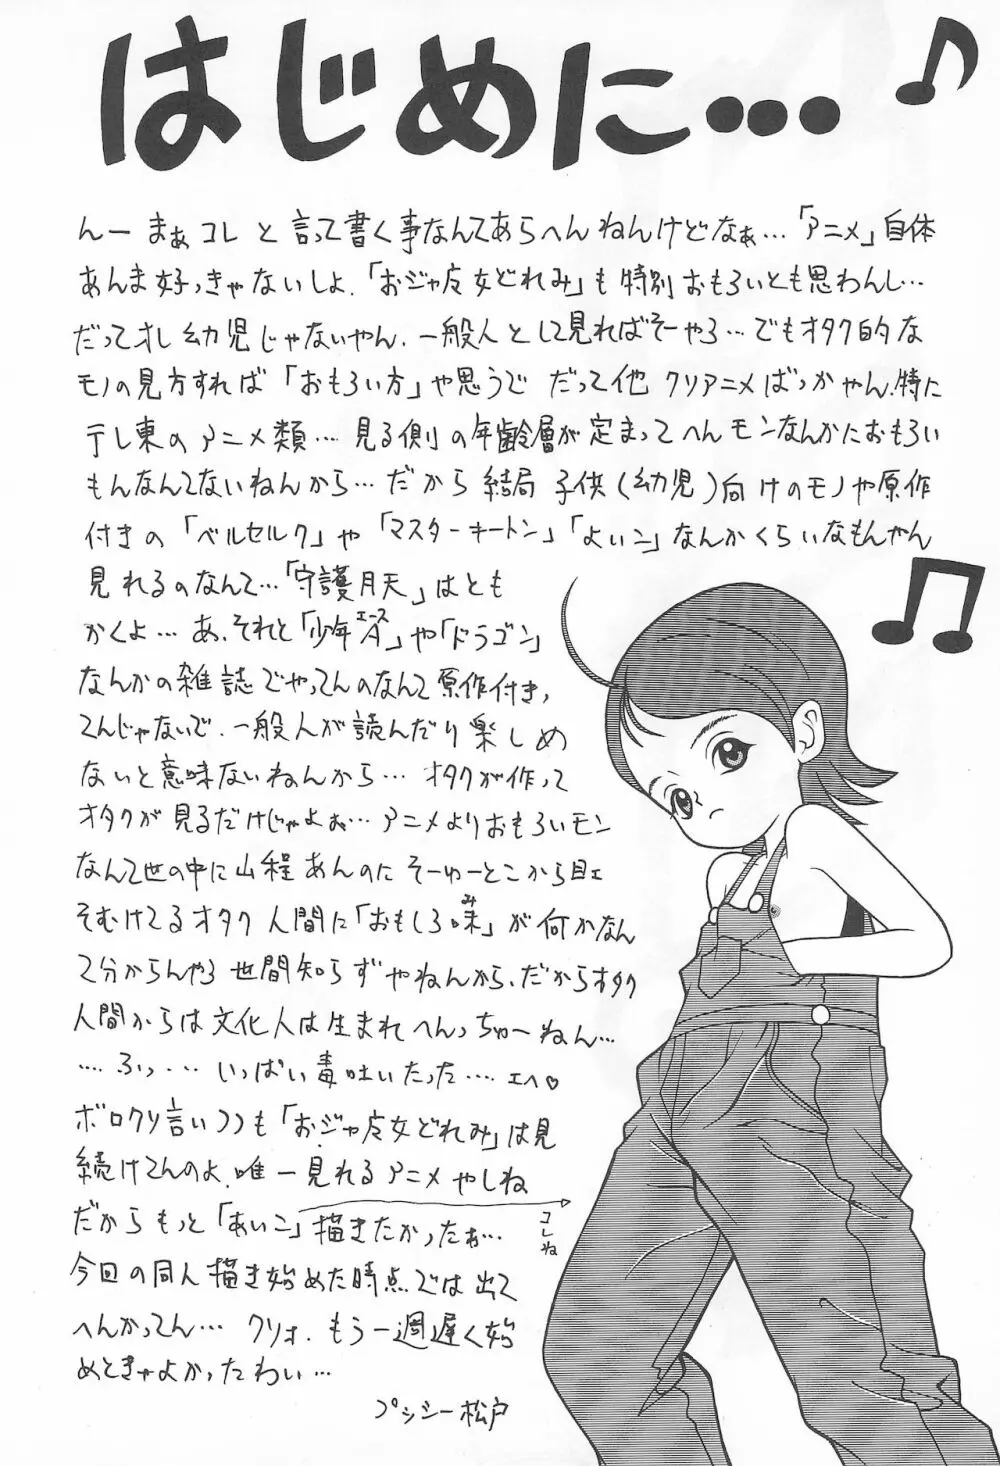 はじめに・・・
んー まぁ コレ と 言って 書く 事なんてあらへんねんけどなぁ…「アニメ」自体
あんま好っきゃないしよ.「おジャ魔女どれみ」も 特別 おもろいとも思わんし…
だってオレ 幼児じゃないやん. 一般人として見ればそーやろ…でもオタク的な
モノの見方すれば「おもろい方」や思うで だって他 クソアニメばっかやん.特に
テレ東のアニメ類… 見る側の年齢層が定まってへんモンなんかにおもろい
もんなんてないねんから…だから 結局 子供(幼児)向けのモノや原作
付きの「ベルセルク」や「マスターキートン」「よいこ」なんかくらいなもんやん
見れるのなんて…「守護月天」はとも
かくよ… あ、それと「少年エース」や「ドラゴン」
なんかの雑誌でやってんのなんて原作付き,
てんじゃないで. 一般人が読んだり楽しめ
ないと意味ないねんから… オタクが作って
オタクが見るだけじゃよぉ…アニメよりおもろいモン
なんて世の中に山程あんのに そーゆーとこから目ェ
そむけてるオタク人間に「おもしろ味」が何かなん
て分からんやろ 世間知らずやねんから、だからオタク
人間からは文化人は生まれへんっちゅーねん…
…ふっ…いっぱい毒吐いたった…エヘ♡
ボロクソ言いつつも「おジャ魔女どれみ」は見
続けてんのよ.唯一見れるアニメやしね
だからもっと「あいこ」描きたかったぉ…
コレね
今回の同人描き始めた時点では出て
へんかってん… クソォ. もう一週遅く始
めときゃよかったわい…
プシシー松戸